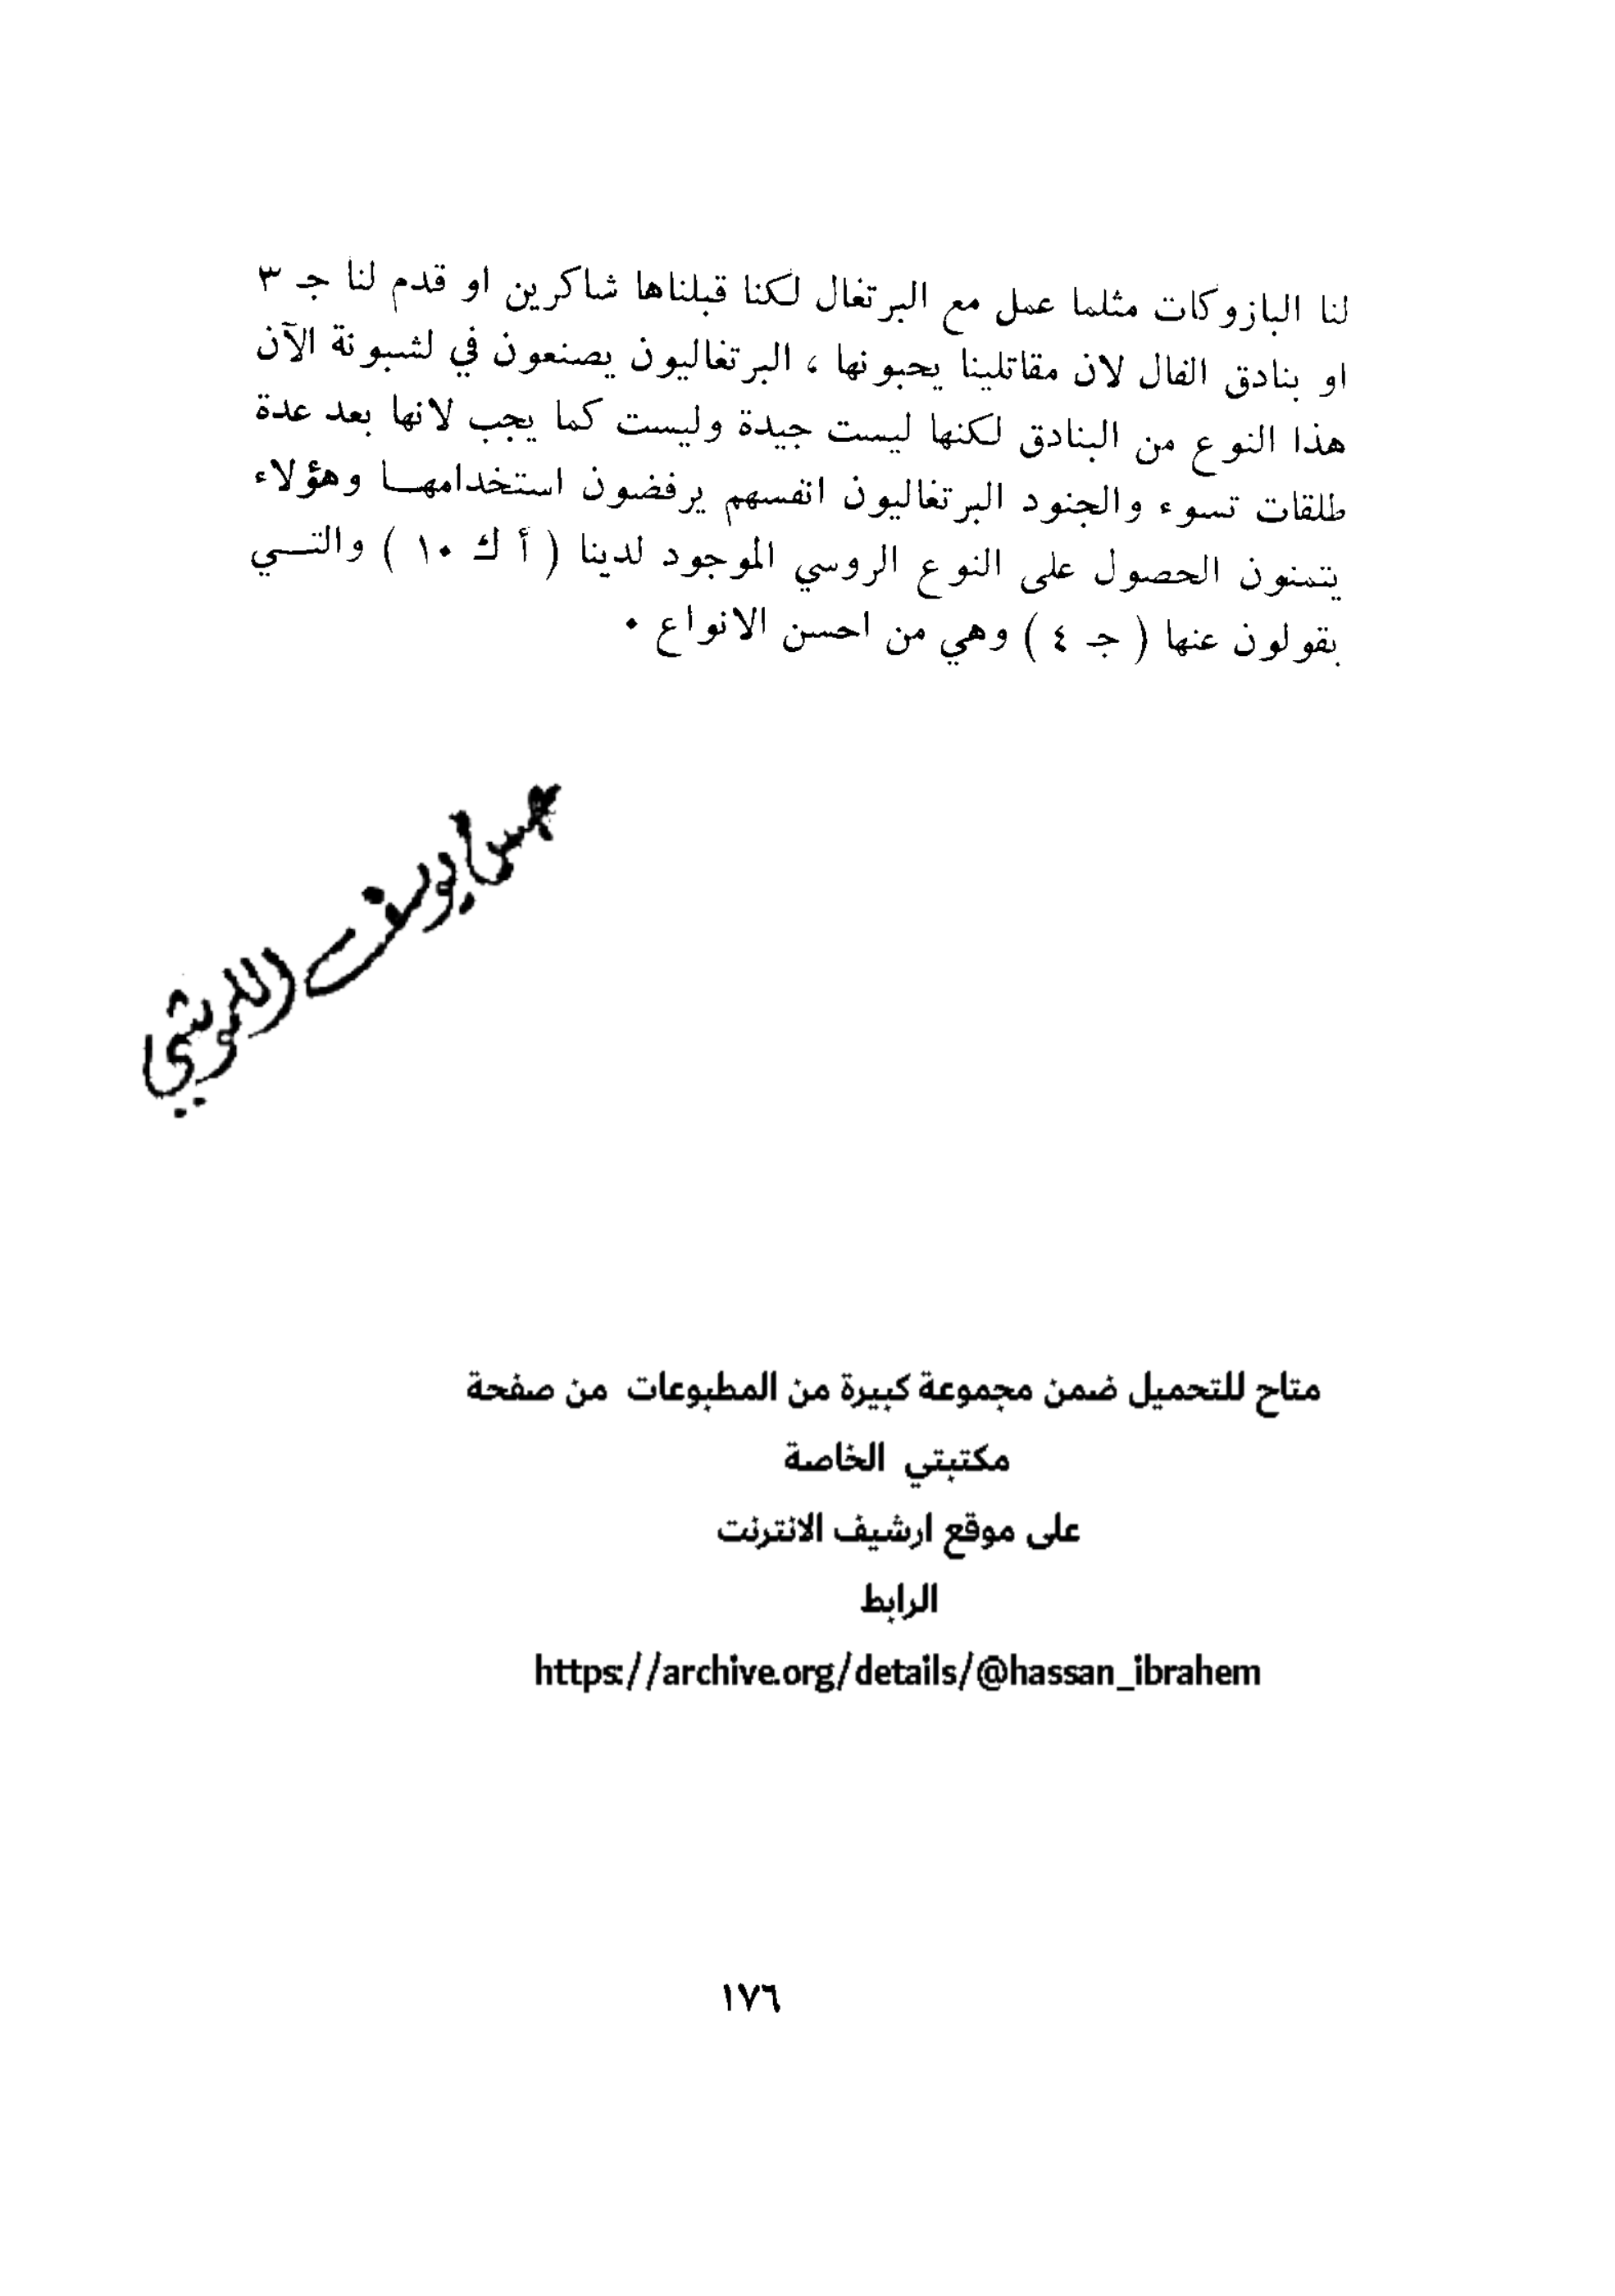 لنا البازوكات مثلما عمل مع البرتغال لكنا قبلناها شاكرين او قدم لنا جـ ٣
او بنادق الفال لان مقاتلينا يحبونها ، البرتغاليون يصنعون في لشبونة الآن
هذا النوع من البنادق لكنها ليست جيدة وليست كما يجب لانها بعد عدة
طلقات تسوء والجنود البرتغاليون انفسهم يرفضون استخدامهـا وهؤلاء
يتمنون الحصول على النوع الروسي الموجود لدينا ( أ ك ١٠ ) والتـي
يقولون عنها ( جـ ٤ ) وهي من احسن الانواع ٠
يوسف
متاح للتحميل ضمن مجموعة كبيرة من المطبوعات من صفحة
مكتبتي الخاصة
على موقع ارشيف الانترنت
الرابط
https://archive.org/details/@hassan_ibrahem
١٧٦